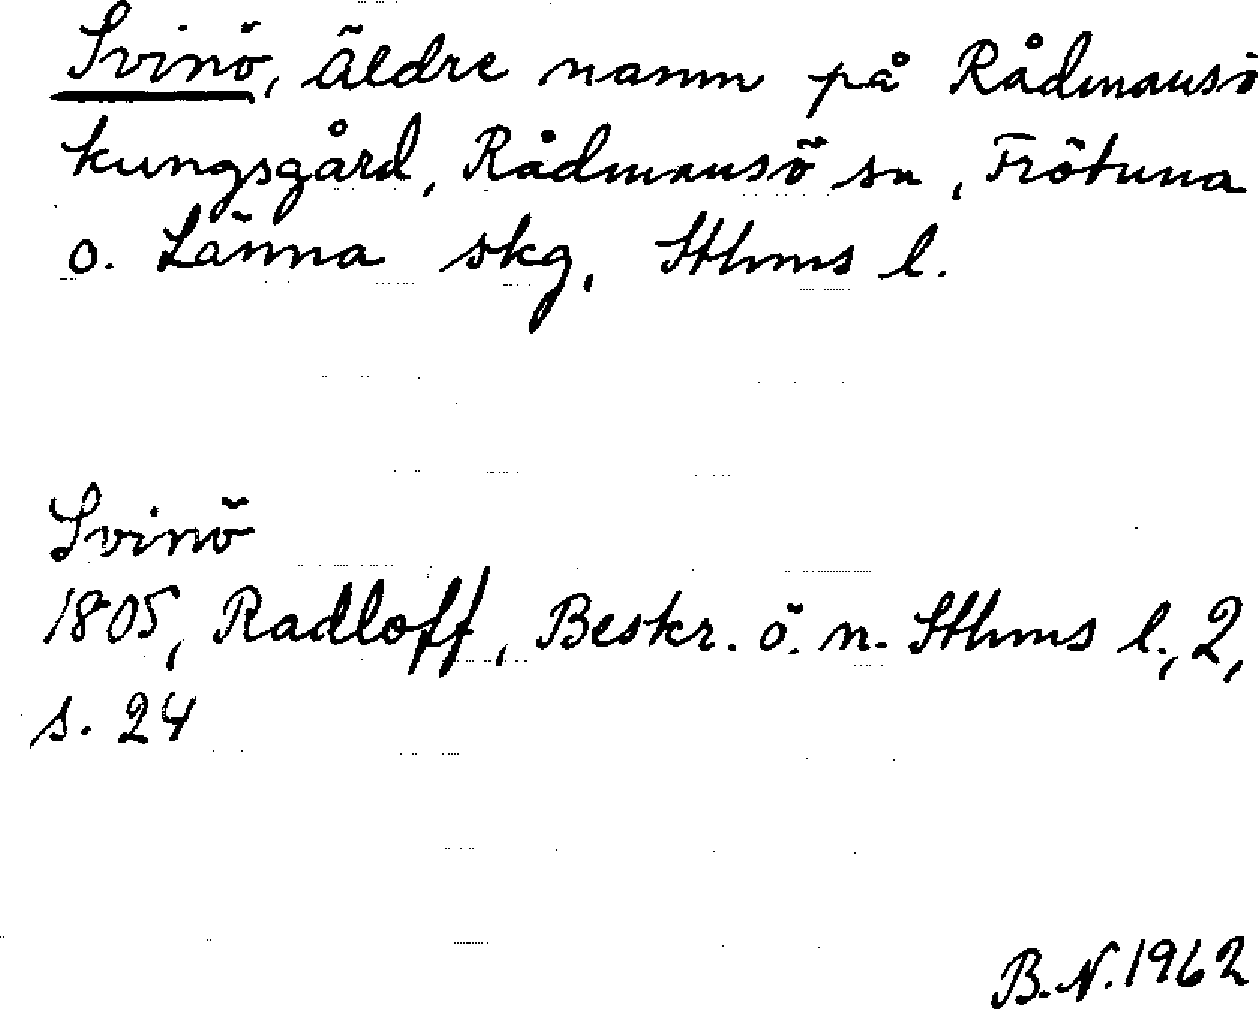 Svinö, äldre namn på Rådmansö
kungsgård, Rådmansö sn, Frötuna
o. Länna skg, Sthms l.
Svinö
1805, Radloff, Beskr. ö. n. Sthms l., 2,
s. 24
B.N. 1962